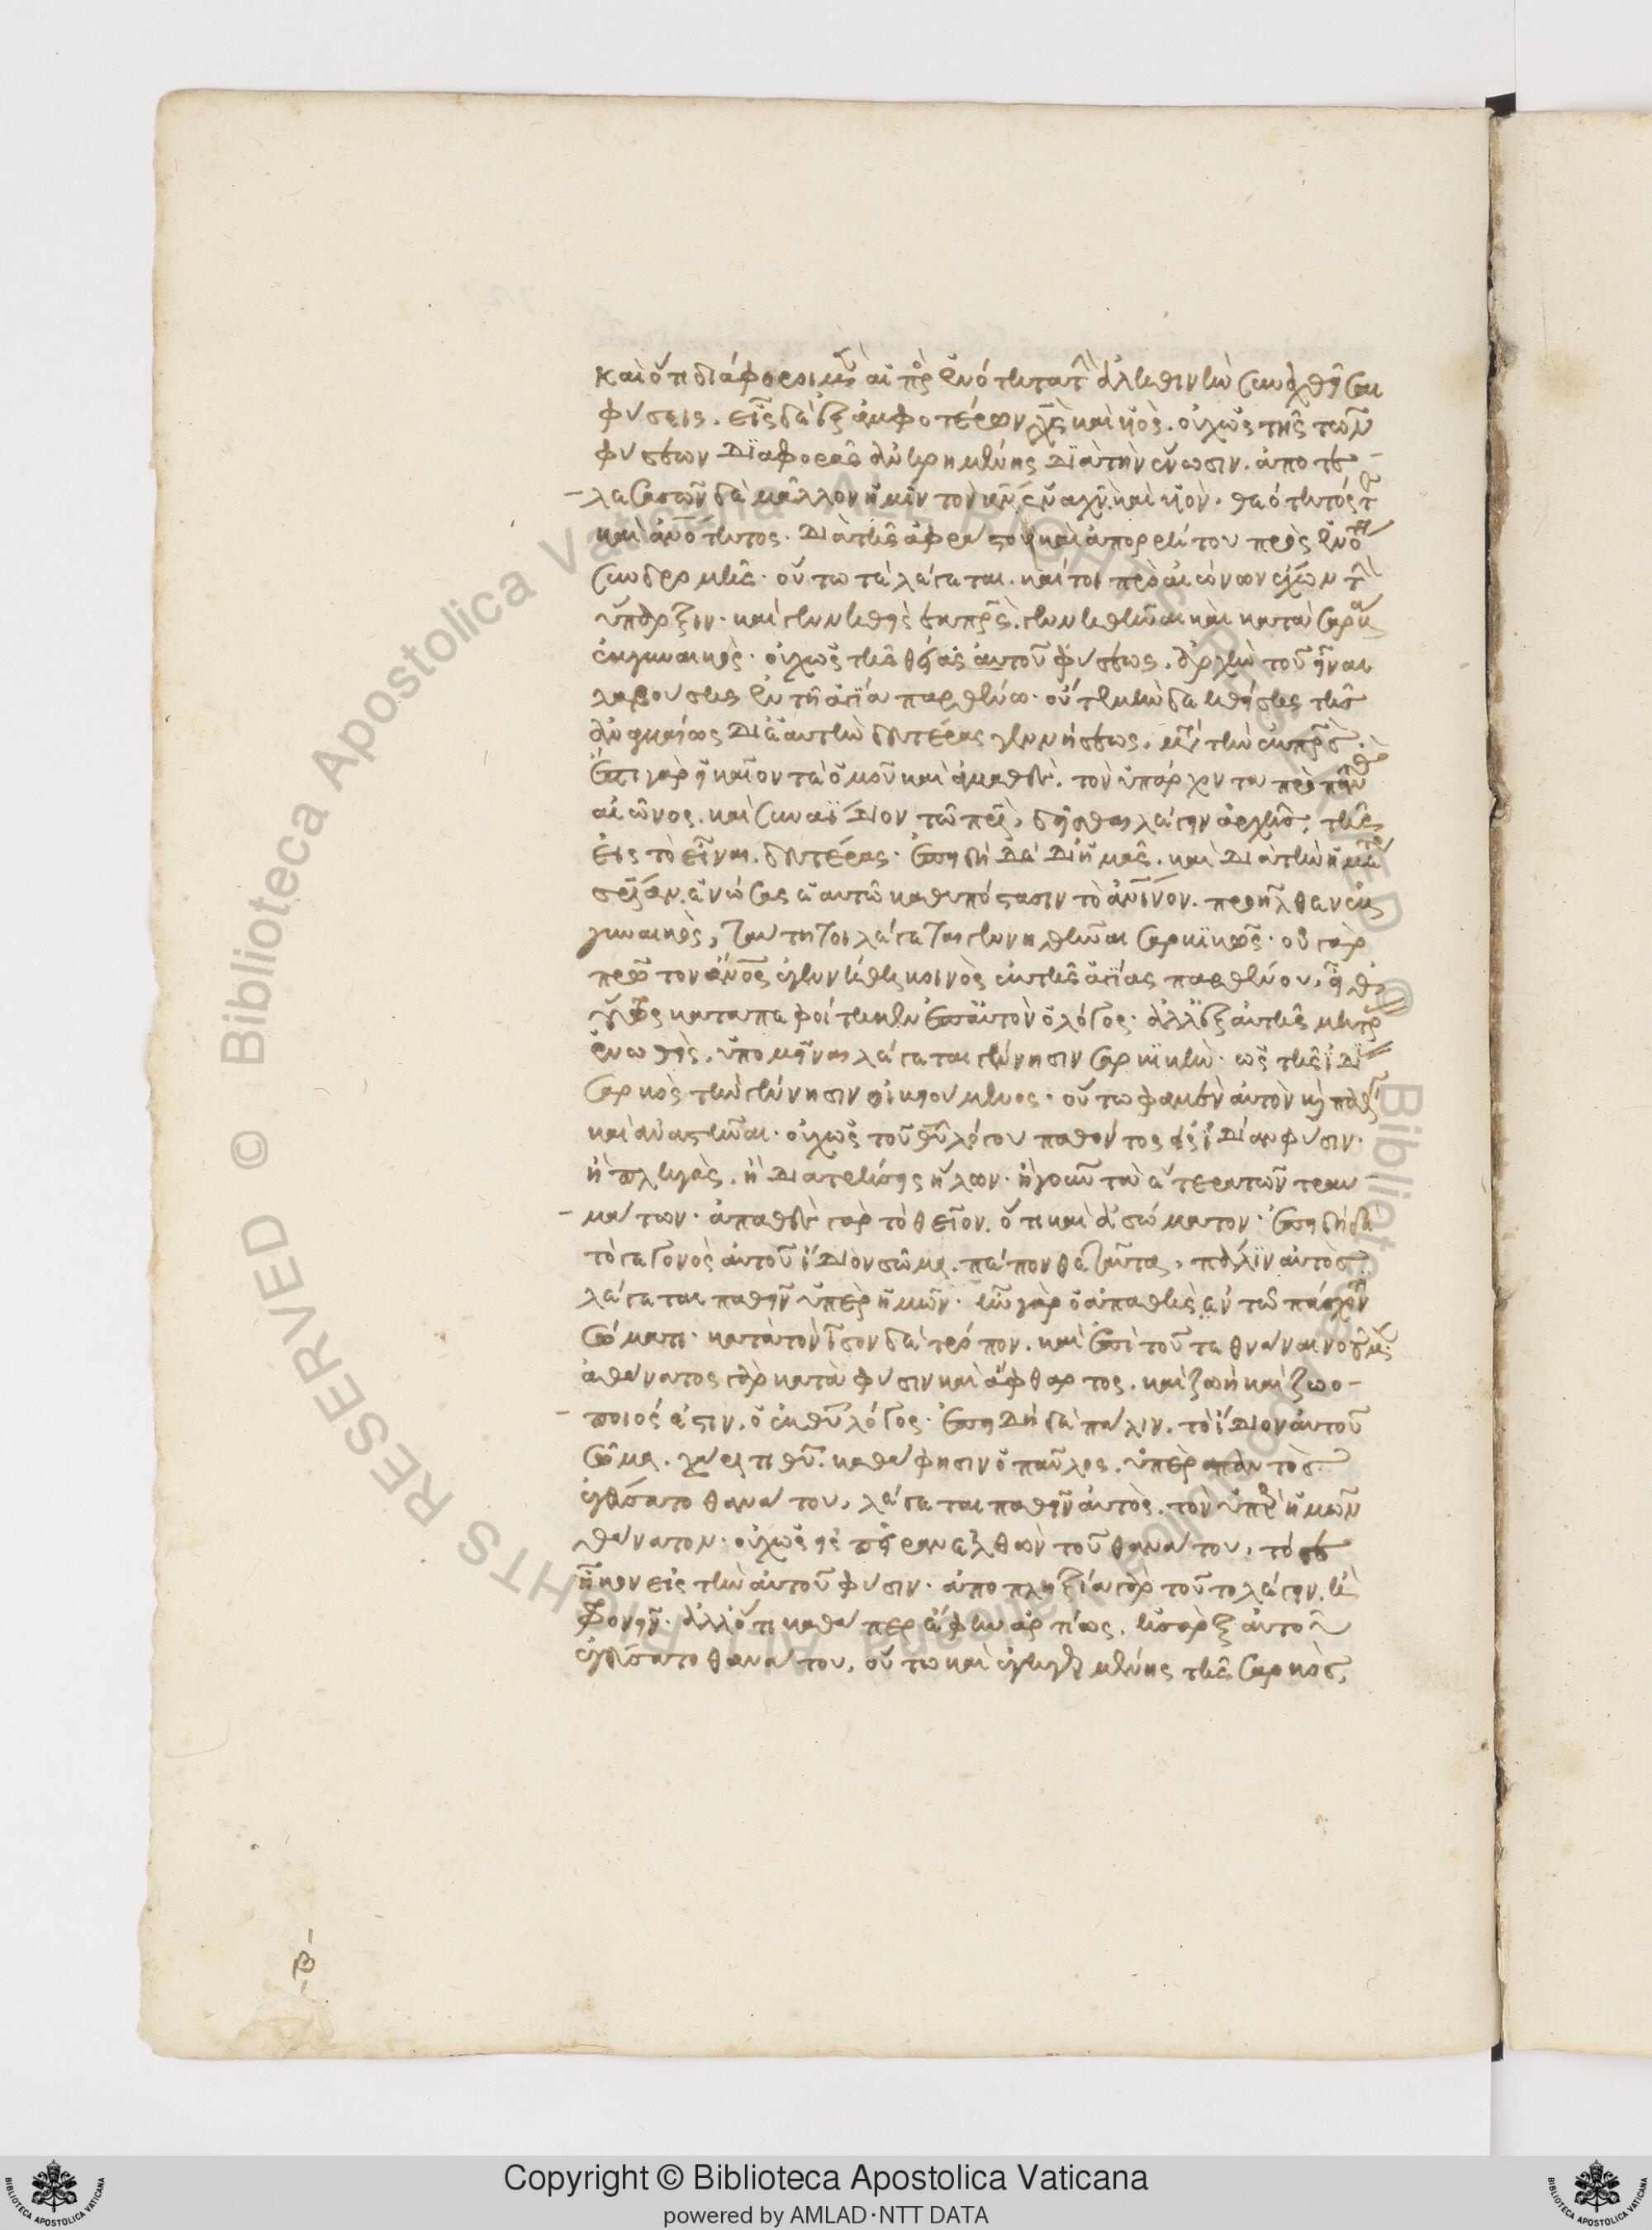 καὶ ὅτι διάφοροι μὲν αἱ πρὸς ἑνότητα τὴν ἀληθινὴν συναχθεῖσαι
φύσεις. εἷς δὲ ἐξ ἀμφοτέρων χς καὶ υἱός. οὐχ ὡς τῆς τῶν
φύσεων διαφορᾶς ἀνῃρημένης διὰ τὴν ἕνωσιν. ἀποτε-
-λεσασῶν δὲ μᾶλλον ἡμῖν τὸν κν ἕνα χν καὶ υἱόν. θεότητός τε
καὶ ἀνότητος. διὰ τῆς ἀφράστου καὶ ἀπορρήτου πρὸς ἑνότητα
συνδρομῆς. οὕτω τε λέγεται. καίτοι πρὸ αἰώνων ἔχων τὴν
ὕπαρξιν. καὶ γεννηθεὶς ἐκ πρς. γεννηθῆναι καὶ κατὰ σάρκα
ἐκ γυναικός. οὐχ ὡς τῆς θείας αὐτοῦ φύσεως. ἀρχὴν τοῦ εἶναι
λαβούσης ἐν τῇ ἁγίᾳ παρθένῳ. οὔτε μὴν δεηθείσης τῆς
ἀναγκαίως δι' ἑαυτὴν δευτέρας γεννήσεως. μετὰ τὴν ἐκ πρς.
ἔστι γὰρ εἰκαῖόν τε ὁμοῦ καὶ ἀμαθές. τὸν ὑπάρχοντα πρὸ παντὸς
αἰῶνος. καὶ συναΐδιον τῷ πρὶ, δεῖσθαι λέγειν ἀρχῆς, τῆς
εἰς τὸ εἶναι δευτέρας. ἐπειδὴ δὲ δι' ἡμᾶς. καὶ διὰ τὴν ἡμετέραν
σρίαν. ἑνώσας ἑαυτῷ καθ' ὑπόστασιν τὸ ἀνινον. προῆλθεν ἐκ
γυναικός, ταύτῃ τοι λέγεται γεννηθῆναι σαρκικῶς. οὐ γὰρ
πρῶτον ἄνος ἐγεννήθη κοινὸς ἐκ τῆς ἁγίας παρθένου, εἶθ'
οὕτως καταπεφοίτηκεν ἐπ' αὐτὸν ὁ λόγος. ἀλλ' ἐξ αὐτῆς μήτρας
ἑνωθείς. ὑπομεῖναι λέγεται γέννησιν σαρκικήν. ὡς τῆς ἰδίας
σαρκὸς τὴν γέννησιν οἰκειούμενος. οὕτω φαμὲν αὐτὸν καὶ παθεῖν
καὶ ἀναστῆναι. οὐχ ὡς τοῦ θυ λόγου παθόντος εἰς ἰδίαν φύσιν.
ἢ πληγάς. ἢ διατρήσεις ἥλων. ἤγουν τὰ ἕτερα τῶν τραυ-
-μάτων. ἀπαθὲς γὰρ τὸ θεῖον. ὅτι καὶ ἀσώματον. ἐπειδὴ δὲ
τὸ γεγονὸς αὐτοῦ ἴδιον σῶμα. πέπονθε ταῦτα, πάλιν αὐτὸς
λέγεται παθεῖν ὑπὲρ ἡμῶν. ἦν γὰρ ὁ ἀπαθὴς ἐν τῷ πάσχοντι
σώματι. κατὰ τὸν ἴσον δὲ τρόπον. καὶ ἐπὶ τοῦ τεθνάναι νοοῦμεν.
ἀθάνατος γὰρ κατὰ φύσιν καὶ ἄφθαρτος. καὶ ζωὴ καὶ ζωο-
-ποιός ἐστιν. ὁ ἐκ θυ λόγος. ἐπειδὴ δὲ πάλιν. τὸ ἴδιον αὐτοῦ
σῶμα. χάριτι θυ. καθά φησιν ὁ παῦλος. ὑπὲρ παντὸς
ἐγεύσατο θανάτου, λέγεται παθεῖν αὐτὸς. τὸν ὑπὲρ ἡμῶν
θάνατον. οὐχ ὡς εἰς πεῖραν ἐλθὼν τοῦ θανάτου, τό γε
ἧκον εἰς τὴν αὐτοῦ φύσιν. ἀποπληξία γὰρ τοῦτο λέγειν. ἢ
φρονεῖν. ἀλλ' ὅτι καθάπερ ἔφην ἀρτίως. ἡ σὰρξ αὐτοῦ
ἐγεύσατο θανάτου, οὕτω καὶ ἐγηγερμένης τῆς σαρκὸς,
β
Copyright © Biblioteca Apostolica Vaticana
powered by AMLAD·NTT DATA